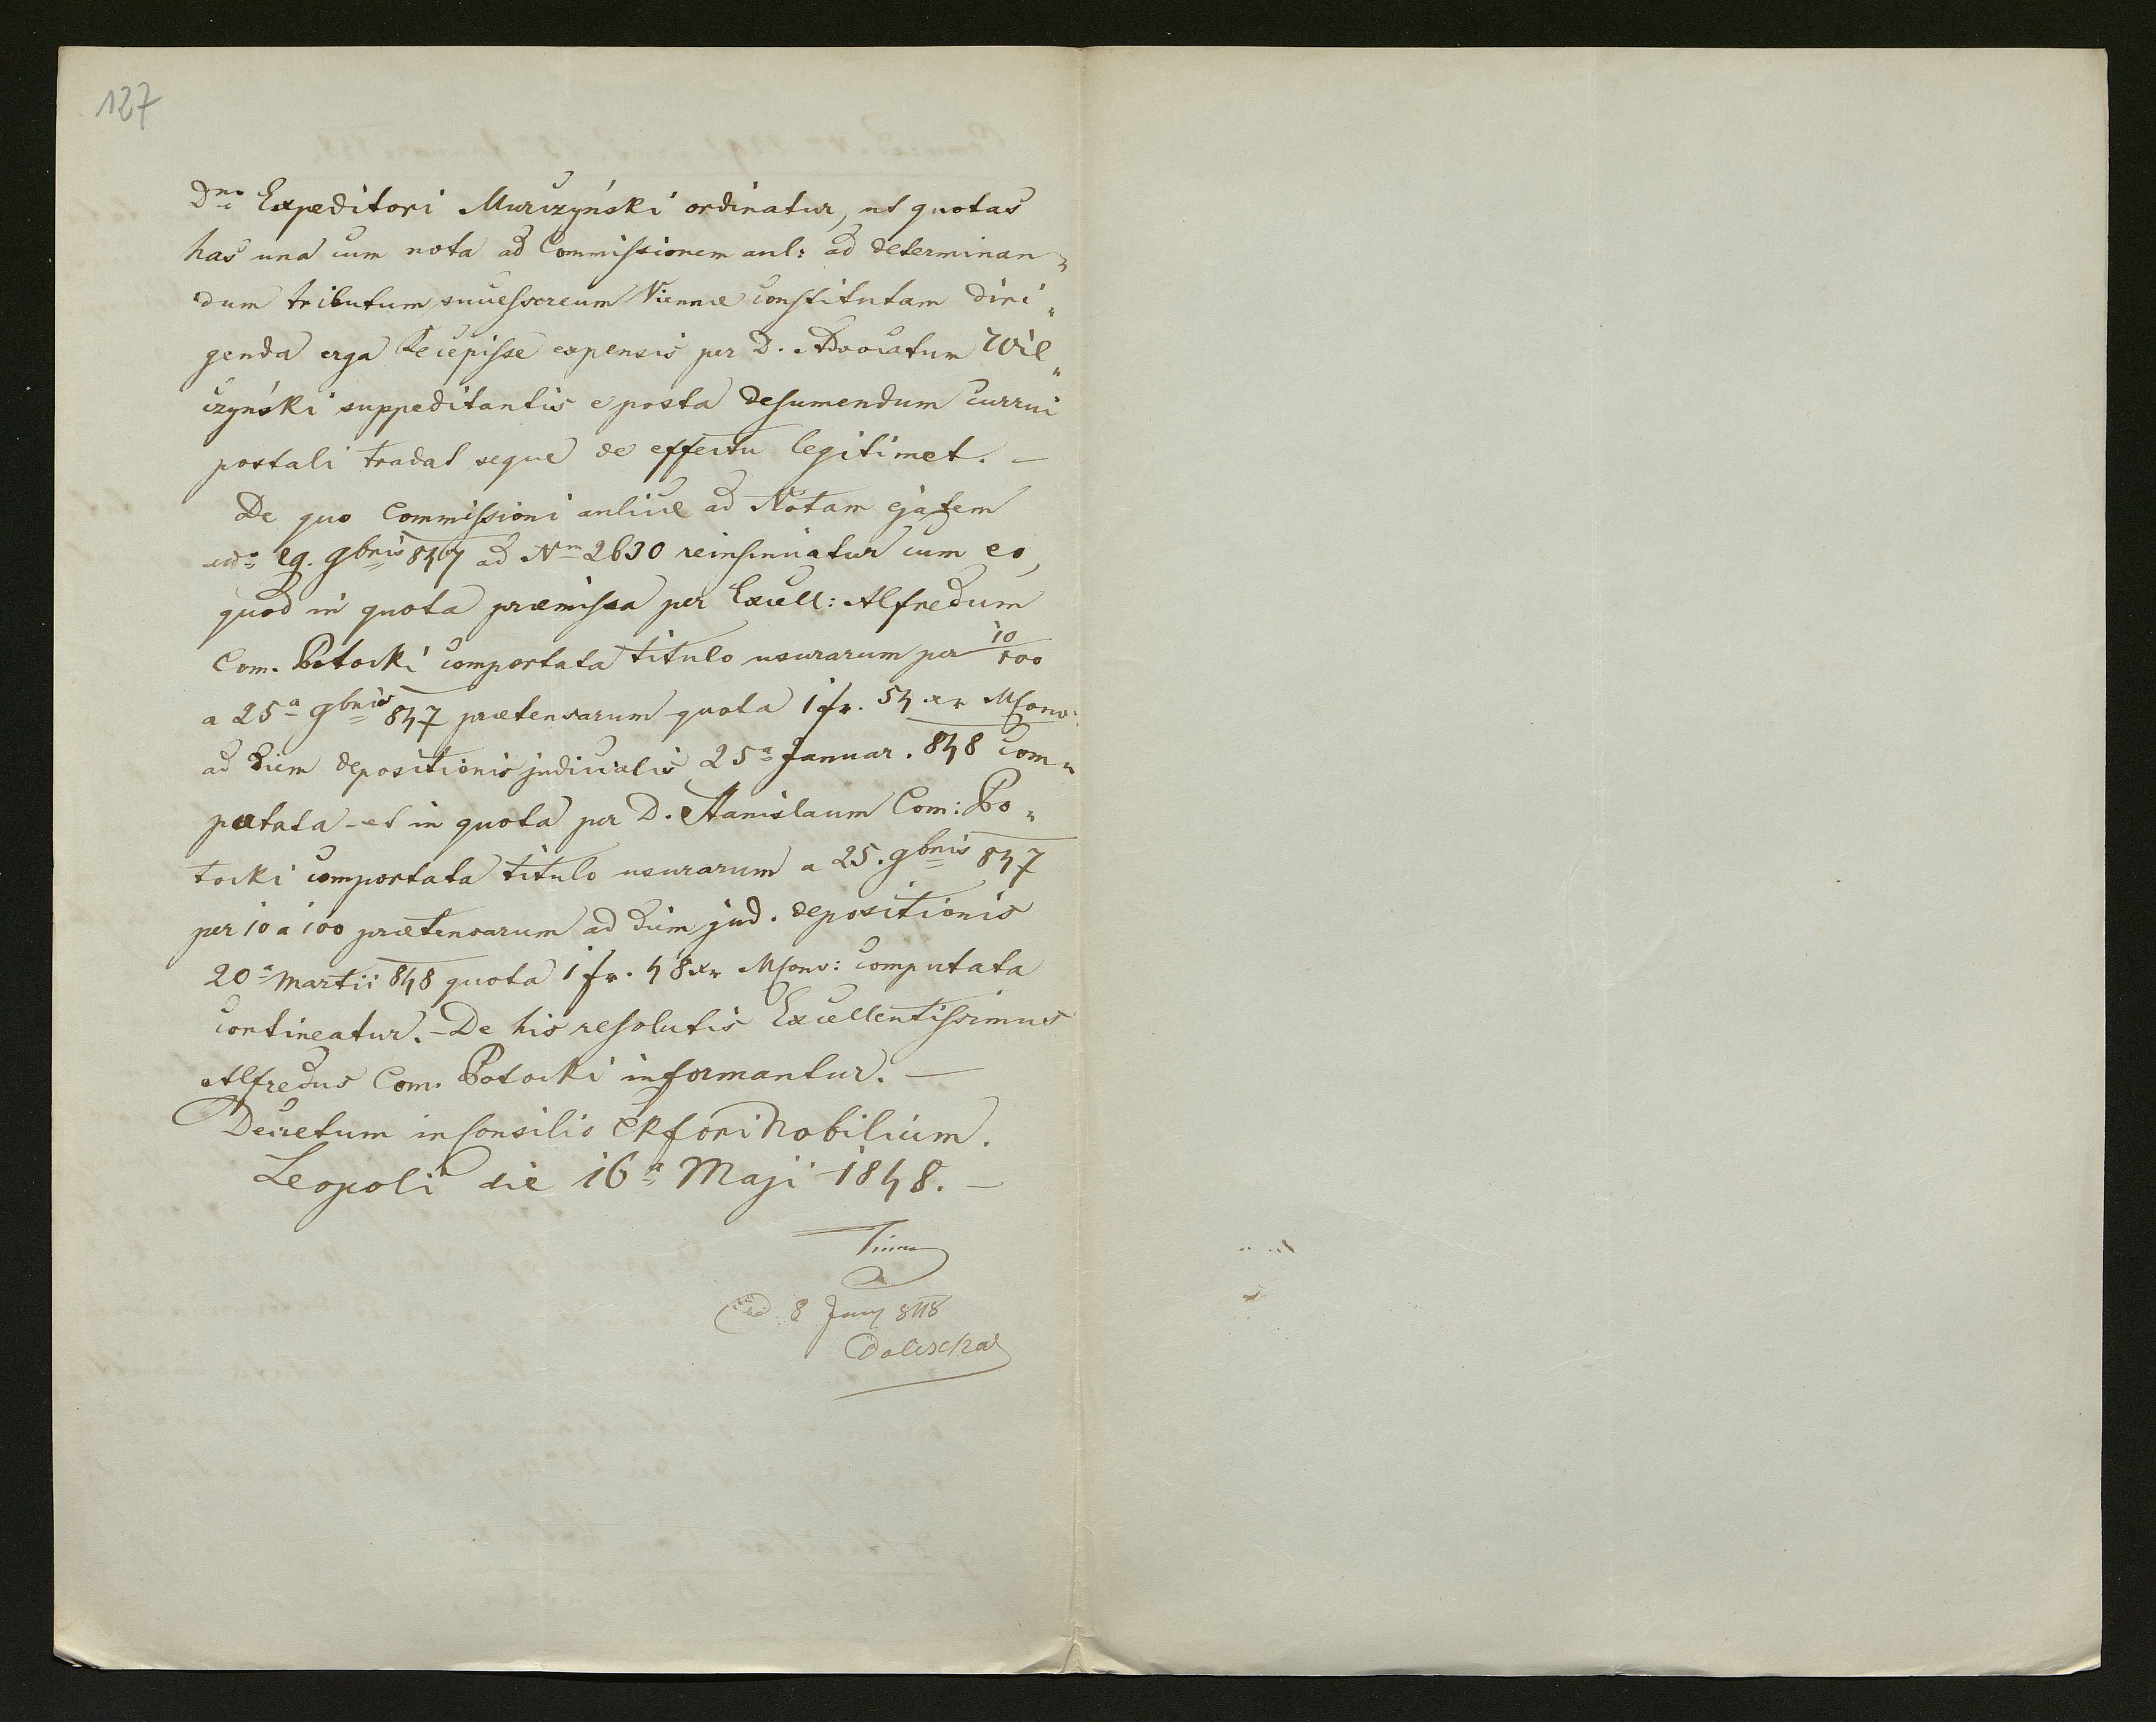 127
Dno Expeditori Murczyński ordinatur, ut quotas
has una cum nota ad Commissionem aul: ad determinan„
dum tributum successoreum Viennæ constitutam diri„
genda erga Recepisse expensis per D. Advocatum Wil„
czyński suppeditantis e posta desumendum currui
postali tradat seque de effectu legitimet. —
De quo Commissioni aulicæ ad Notam ejatem
29. 9bris 847 ad Nm 2630 reinsinuatur cum eo,
quod in quota præmissa per Excell: Alfredum
Com. Potocki comportata titulo usurarum per 10/100
a 25a 9bris 847 prætensarum quota 1 fr. 54 xr MConv:
ad diem depositionis judicialis 25a Januar. 848 com„
putata – et in quota per D. Stanislaum Com: Po„
tocki comportata titulo usurarum a 25. 9bris 847
per 10 a 100 prætensarum ad diem jud. depositionis
20a Martii 848 quota 1 fr. 48 xr MConv: computata
contineatur. – De his resolutis Excellentissimus
Alfredus Com. Potocki informantur. —
Decretum in Consilio CR fori Nobilium.
Leopoli die 16a Maji 1848. —
8 Juny 848
Doleschal